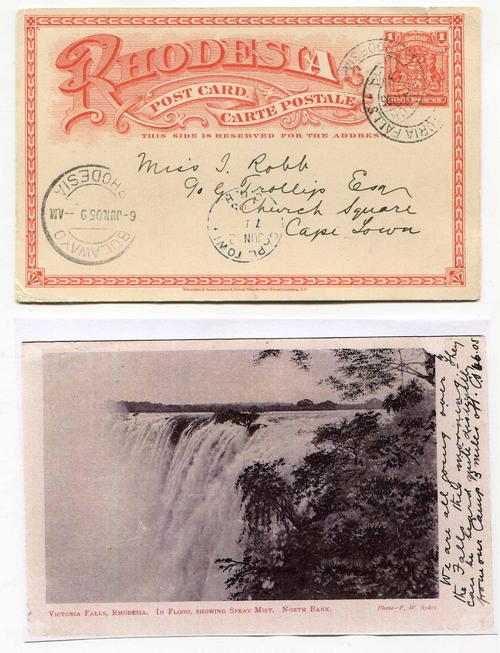 RHODESIA
POST CARD.
CARTE POSTALE
THIS SIDE IS RESERVED FOR THE ADDRESS
1 BRITISH 1
SOUTH AFRICA COMPANY
VICTORIA FALLS
RHODESIA
Miss I. Robb
c/o G. Trollip Esq
Church Square
Cape Town
BULAWAYO
6-JUN.05 9--AM
RHODESIA
CAPE TOWN
JUN
Waterlow & Sons Limited,
VICTORIA FALLS, RHODESIA. IN FLOOD, SHOWING SPRAY MIST. NORTH BANK.
Photo—F. W. Sykes
We are all going over they
the Falls this morning
can be heard quite distinctly
from our Camp 3 miles off.